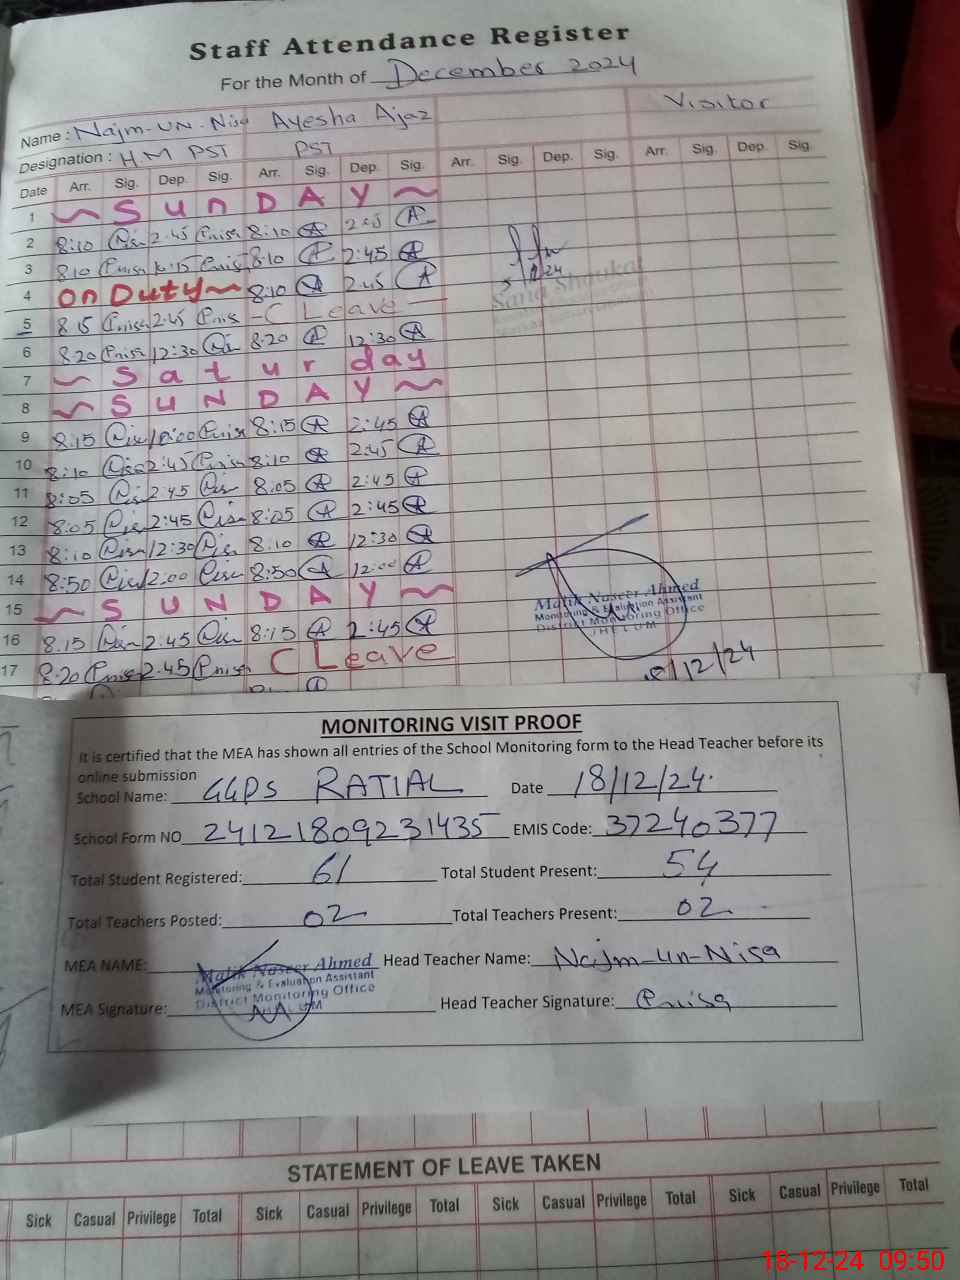 Staff Attendance Register
For the Month of December 2024
Name : Najm-un-Nisa Ayesha Ajaz Visitor
Designation : H.M PST PST
Date Arr. Sig. Dep. Sig. Arr. Sig. Dep. Sig. Arr. Sig. Dep. Sig. Arr. Sig. Dep. Sig.
1 ~ S u n D A Y ~
2 8:10 2:45 8:10 2:45
3 8:10 8:10 2:45
4 On Duty ~ 8:10 2:45
5 8:15 2:45 - C Leave
6 8:20 12:30 8:20 12:30
7 ~ S a t u r day
8 ~ S U N D A Y ~
9 8:15 8:15 2:45
10 8:10 2:45 8:10 2:45
11 8:05 2:45 8:05 2:45
12 8:05 2:45 8:05 2:45
13 8:10 12:30 8:10 12:30
14 8:50 12:00 8:50 12:00
15 ~ S U N D A Y ~
16 8:15 2:45 8:15 2:45
17 8:20 2:45 C Leave
Sana Shoukat
Malik Naseer Ahmed
Monitoring & Evaluation Assistant
District Monitoring Office
JHELUM
18/12/24
MONITORING VISIT PROOF
It is certified that the MEA has shown all entries of the School Monitoring form to the Head Teacher before its
online submission
School Name: GGPS RATIAL Date 18/12/24.
School Form NO 24121809231435 EMIS Code: 37240377
Total Student Registered: 61 Total Student Present: 54
Total Teachers Posted: 02 Total Teachers Present: 02
MEA NAME: Malik Naseer Ahmed Head Teacher Name: Najm-un-Nisa
Monitoring & Evaluation Assistant
District Monitoring Office
MEA Signature: JHELUM Head Teacher Signature:
STATEMENT OF LEAVE TAKEN
Sick Casual Privilege Total Sick Casual Privilege Total Sick Casual Privilege Total Sick Casual Privilege Total
18-12-24 09:50